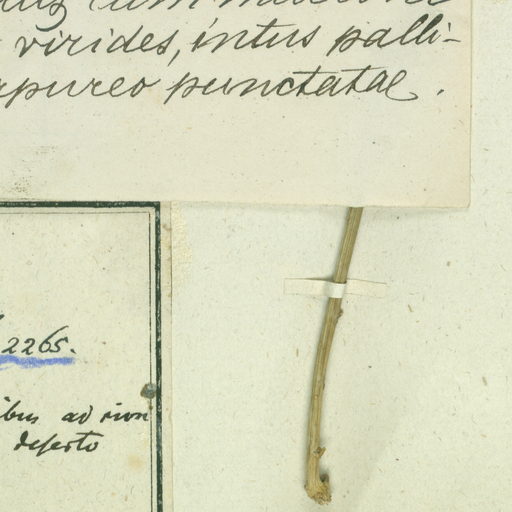 cum
virides, intus palli-
pureo punctatae.
2265.
ibus ad
deserto